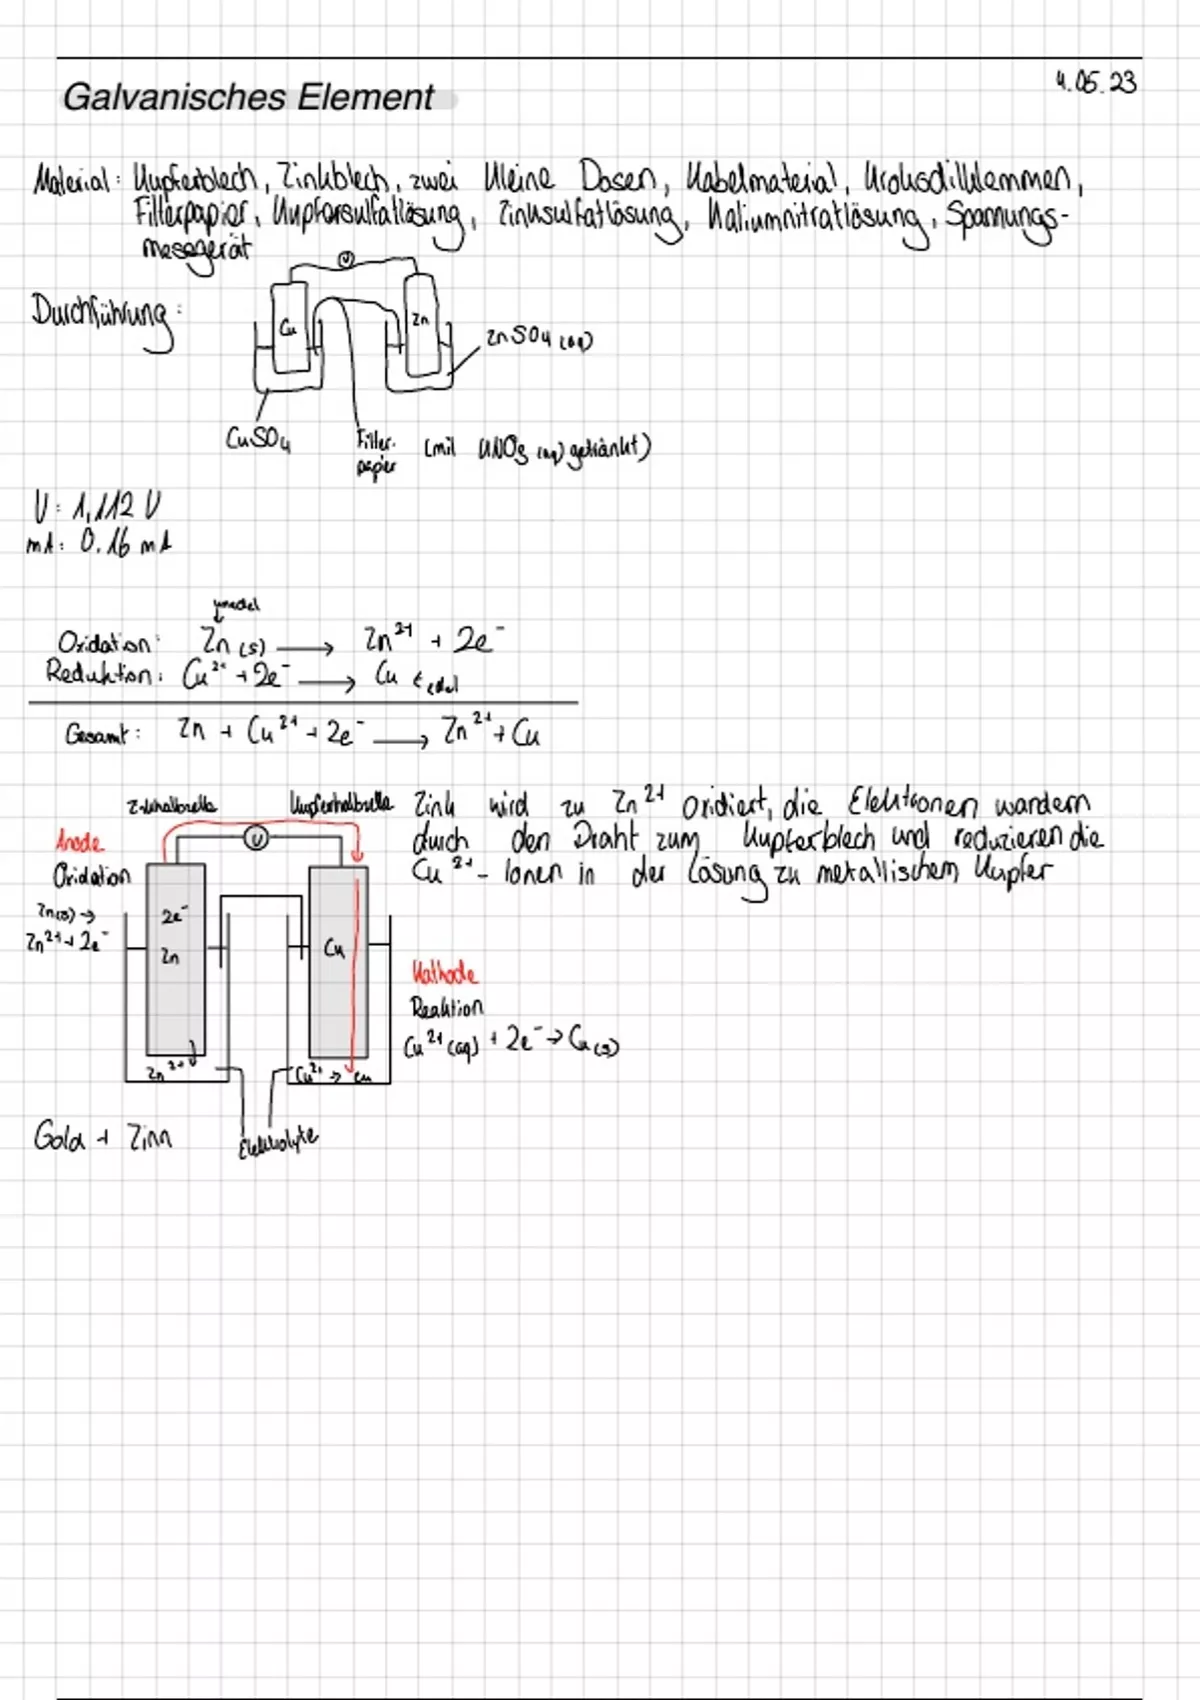 4.05.23
Galvanisches Element
Material: Kupferblech, Zinkblech, zwei kleine Dosen, Kabelmaterial, Krokodilklemmen,
Filterpapier, Kupfersulfatlösung, Zinksulfatlösung, Kaliumnitratlösung, Spannungs-
messgerät
Durchführung:
V
Cu
Zn
ZnSO4 (aq)
CuSO4
Filter-
papier
(mit KNO3 (aq) getränkt)
U: 1,112 V
mA: 0.16 mA
unedel
Oxidation: Zn (s) → Zn²⁺ + 2e⁻
Reduktion: Cu²⁺ + 2e⁻ → Cu ← edel
Gesamt: Zn + Cu²⁺ + 2e⁻ → Zn²⁺ + Cu
Zinkhalbzelle
Kupferhalbzelle
Zink wird zu Zn²⁺ oxidiert, die Elektronen wandern
durch den Draht zum Kupferblech und reduzieren die
Cu²⁺ - Ionen in der Lösung zu metallischem Kupfer
V
Anode
Oxidation
Zn(s) →
Zn²⁺ + 2e⁻
2e⁻
Zn
Cu
Kathode
Reaktion
Cu²⁺ (aq) + 2e⁻ → Cu (s)
Zn²⁺
Cu²⁺ → Cu
Gold + Zinn
Elektrolyte